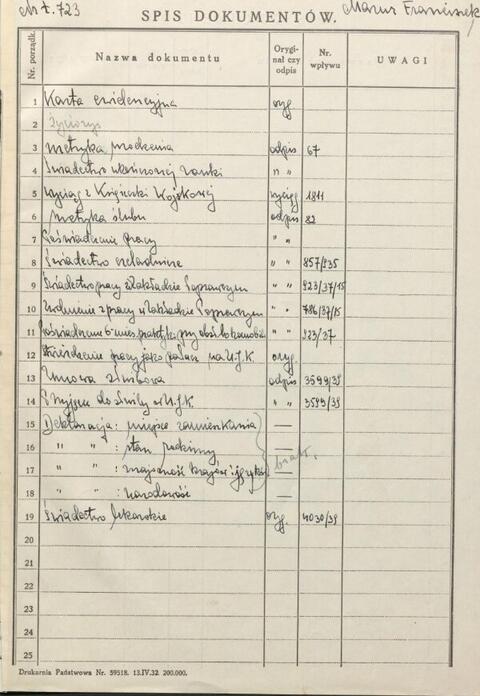 Nr t. 723
SPIS DOKUMENTÓW.
Marus Franciszek
Nr. porządk.
Nazwa dokumentu
Orygi-
nał czy
odpis
Nr.
wpływu
UWAGI
1 Karta ewidencyjna oryg
2 Życiorys
3 metryka urodzenia odpis 67
4 Świadectwo ukończonej nauki " "
5 Wyciąg z Książeczki Wojskowej wyciąg 1811
6 Metryka ślubu odpis 82
7 Poświadczenie pracy " "
8 Świadectwo czeladnicze " " 857/935
9 Świadectwo pracy w Zakładzie Poprawczym " " 923/37/15
10 Zwolnienie z pracy w Zakładzie Poprawczym " " 786/37/15
11 Poświadczenie 6-mies. praktyki przy obsł. lokomobil " 223/37
12 Stwierdzenie pracy jako palacz na U.J.K. oryg.
13 Umowa służbowa odpis 3599/38
14 Przyjęcie do służby w U.J.K. " " 3599/38
15 Deklaracja: miejsce zamieszkania —
16 " " : stan rodzinny —
17 " " : znajomość krajów i języków — brak.
18 " " : narodowość —
19 Świadectwo lekarskie oryg. 4030/38
20
21
22
23
24
25
Drukarnia Państwowa Nr. 59518. 13.IV.32. 200.000.